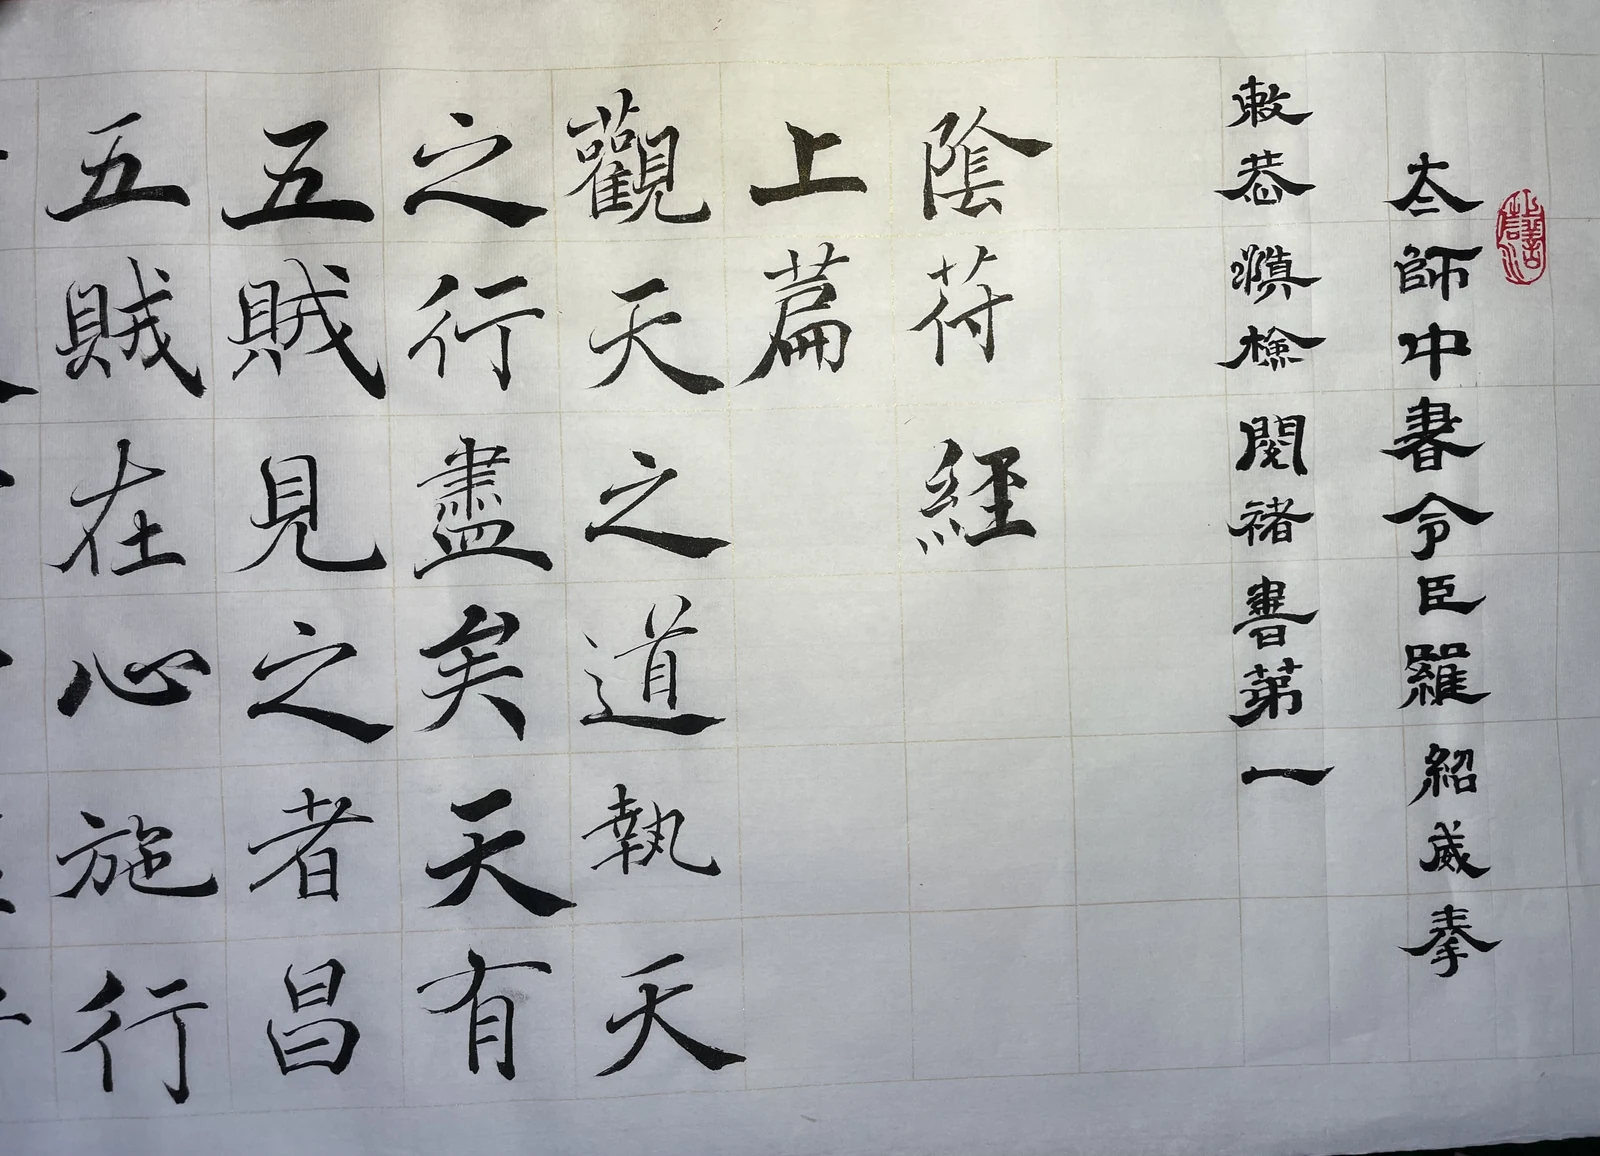 太師中書令臣羅紹威奉
敕恭慎檢閱褚書第一
陰符經
上篇
觀天之道執天
之行盡矣天有
五賊見之者昌
五賊在心施行